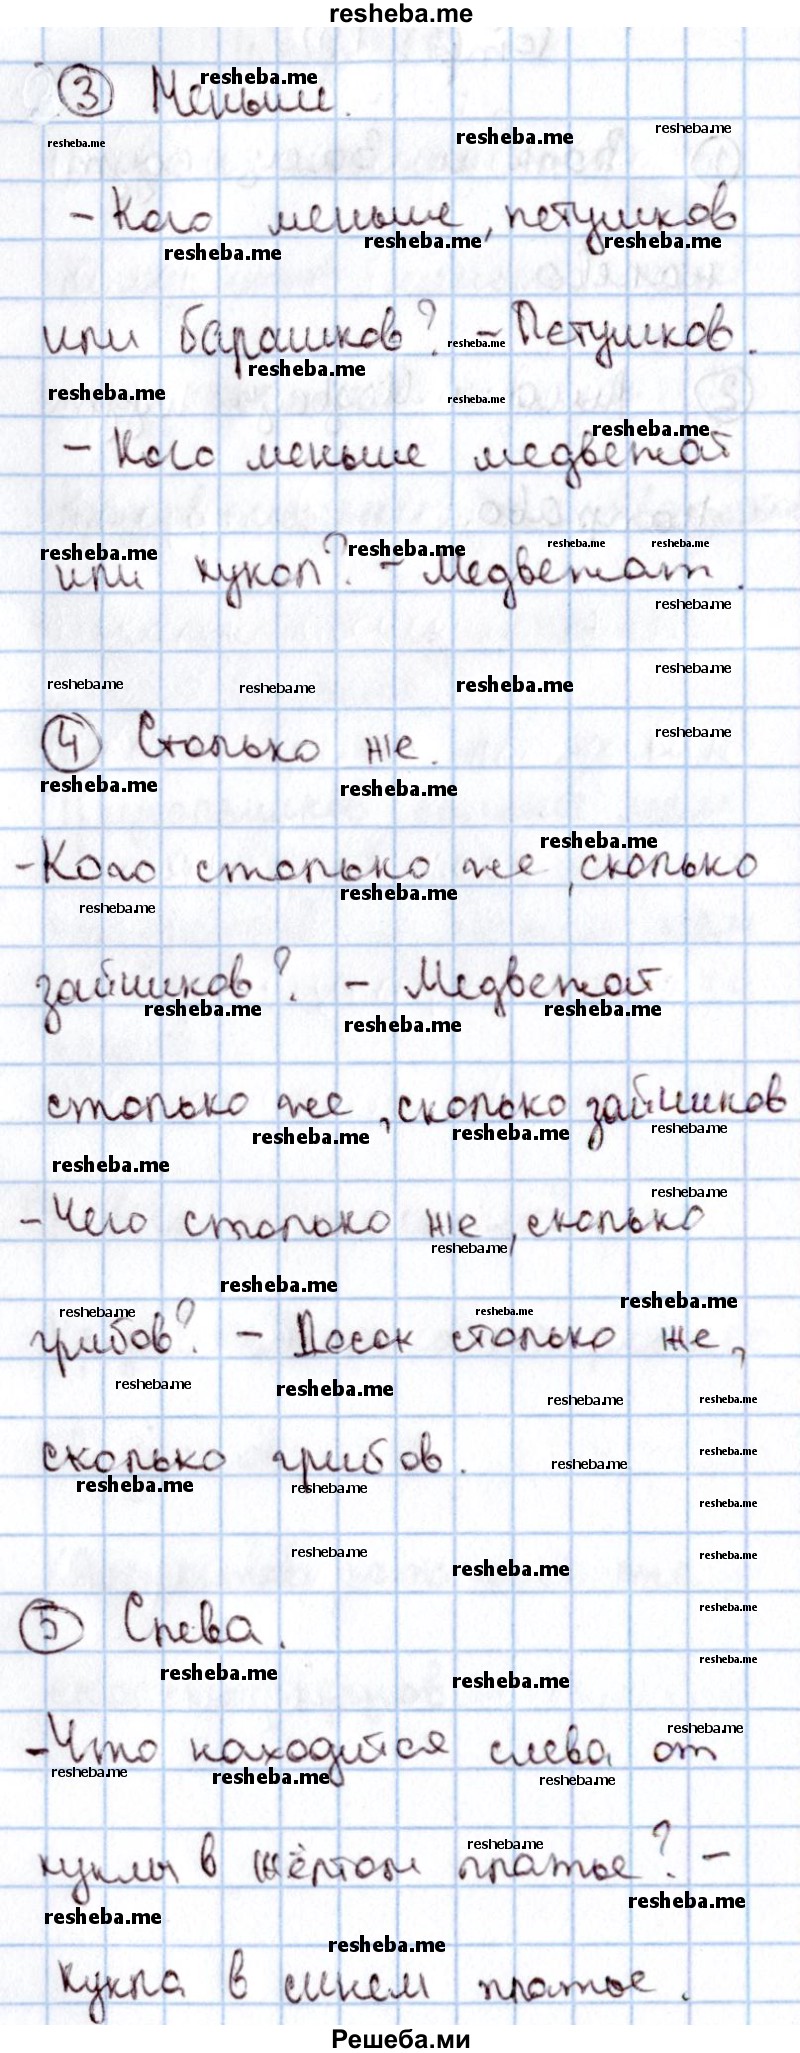 resheba.me
③ Меньше.
- Кого меньше, петушков
или барашков? - Петушков.
- Кого меньше медвежат
или кукол? - Медвежат.
④ Столько же.
- Кого столько же, сколько
зайчиков? - Медвежат
столько же, сколько зайчиков
- Чего столько же, сколько
грибов? - Досок столько же,
сколько грибов.
⑤ Слева.
- Что находится слева от
куклы в жёлтом платье? -
кукла в синем платье.
Решеба.ми